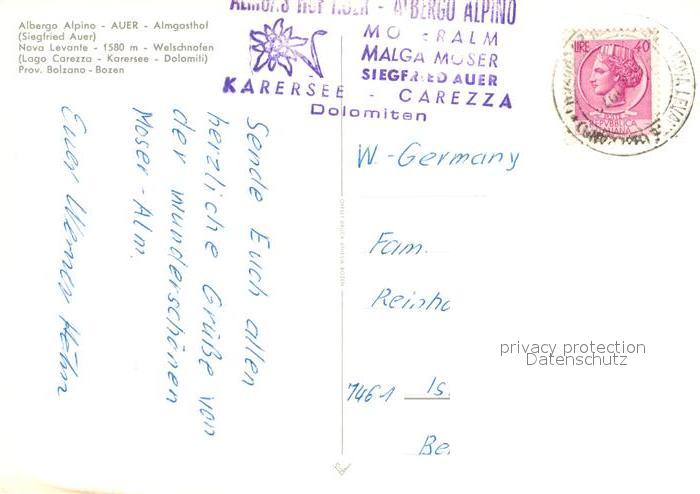 Albergo Alpino - AUER - Almgasthof
(Siegfried Auer)
Nova Levante - 1580 m - Welschnofen
(Lago Carezza - Karersee - Dolomiti)
Prov. Bolzano - Bozen
ALBERGO ALPINO
MALGA MOSER
SIEGFRIED AUER
KARERSEE - CAREZZA
Dolomiten
LIRE 40
W.-Germany
Fam.
Reinho
7461 Is
Be
Sende Euch allen
herzliche Grüße von
der wunderschönen
Moser-Alm.
Euer Werner Höhn
privacy protection
Datenschutz